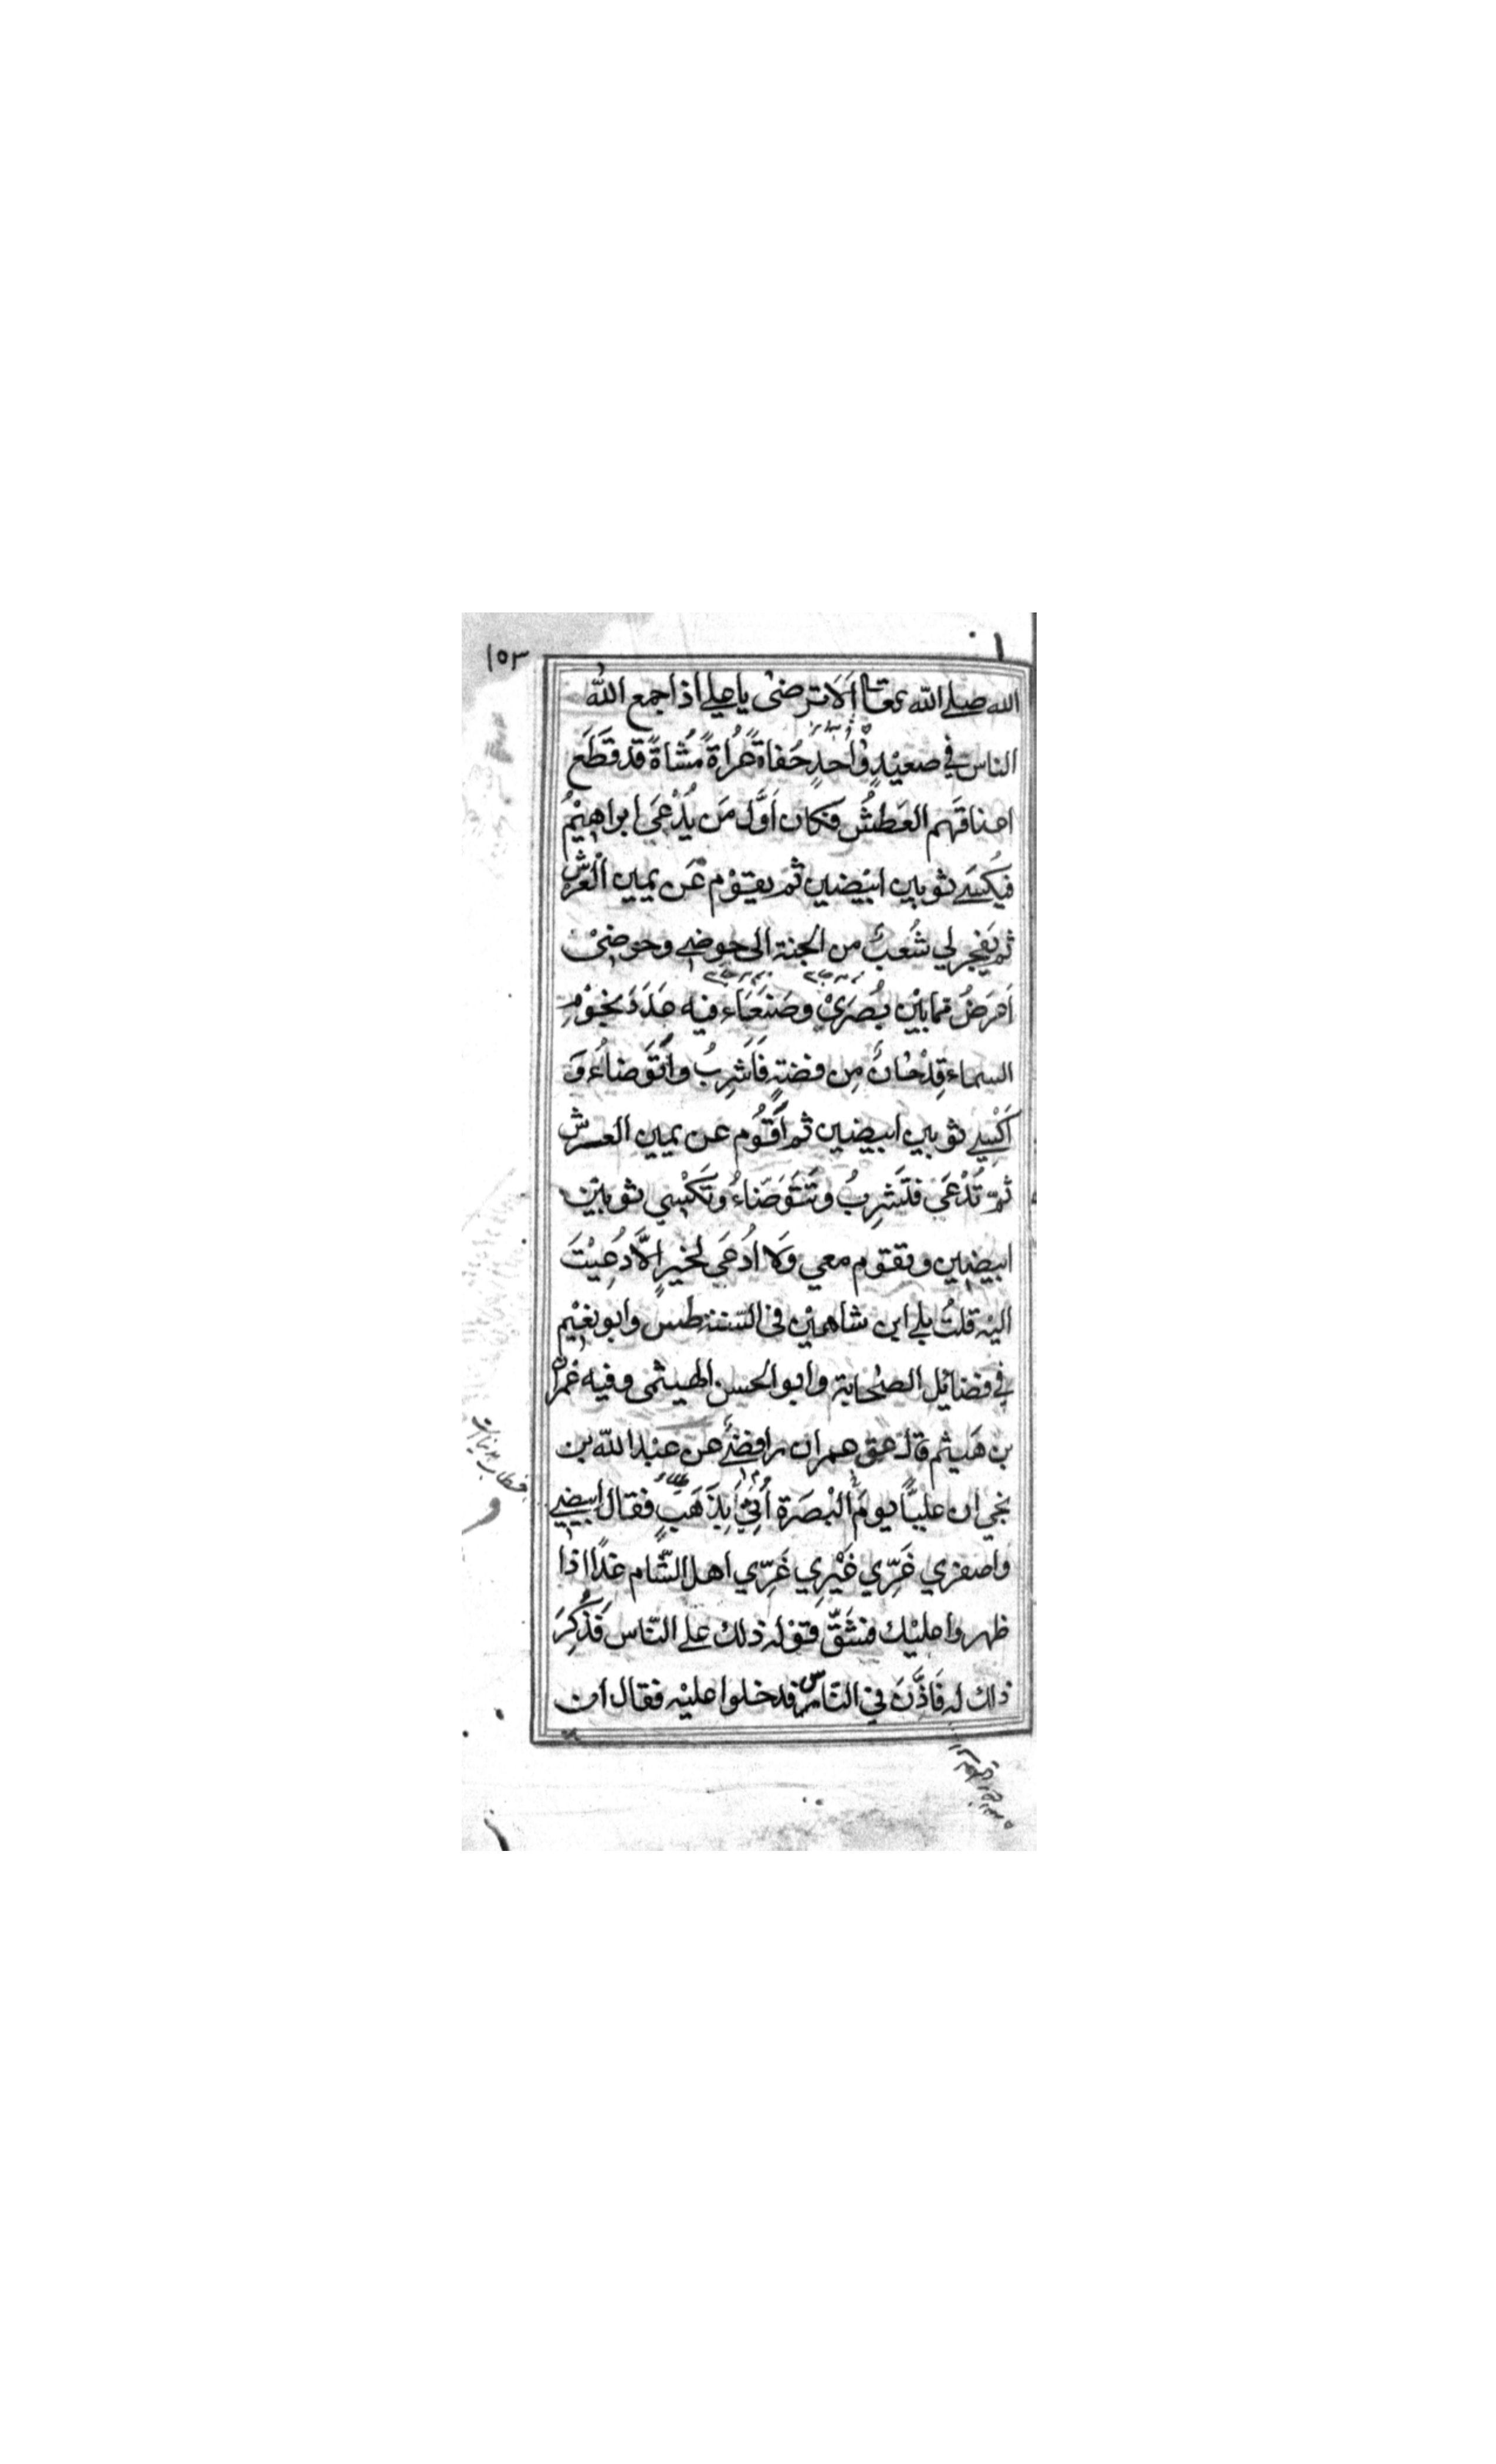 ١٥٣
الله صلے الله تعا اَلَا ترضىٰ ياعلے اذا جمع الله
الناس في صعيْدٍ وٰاحدٍ حُفاةً عُراةً مُشاةً قد قَطَعَ
اعناقَهم العَطشُ فكان اَوَّل مَن يُدْعَىٰ ابراهيْمُ
فيُكسَے ثوبين ابيْضين ثم يقوْم عَن يمين الْعَرْش
ثم يَفجر لي شُعبٌ من الجنة الى حوضے وحوضىْ
اَعرَضُ مما بيْن بُصرَىٰ وصَنَعَاء فيه عَدَدَ نجوْمِ
السماء قِدْحَانٌ مِن فضةٍ فَاَشرِبُ واَتَوَضاءُ وَ
اَكْسٰے ثوبين ابيضين ثم اَقُوم عن يمين العرش
ثم تُدْعَىٰ فتَشرِبُ وتَتَوَضّاءُ وتَكْسٰي ثوبيْن
ابيضين وتقوم معي وَلا اُدعَى لخيرٍ اِلَّا دُعِيْتَ
اليه قلتُ بلے ابن شاهيْن في السنة طس وابو نعيْم
في فضائل الصحابة وابو الحسن الهيثمى وفيه عمران
بن هَيثم قال عق عمران رافضے عن عبد الله بن
نجي ان عليًّا يومَ الْبصَرَة اُتِيَ بِذَهَبٍ فقال ابيضے
واصفري غَرِّي غَيْرِي غَرِّي اهل الشّام غدًا اذا
ظهروا عليْك فشَقَّ قوْله ذلك على النّاس فَذُكِرَ
ذلك له فَاَذَّنَ في النّاس فدخلوا عليْه فقال ان